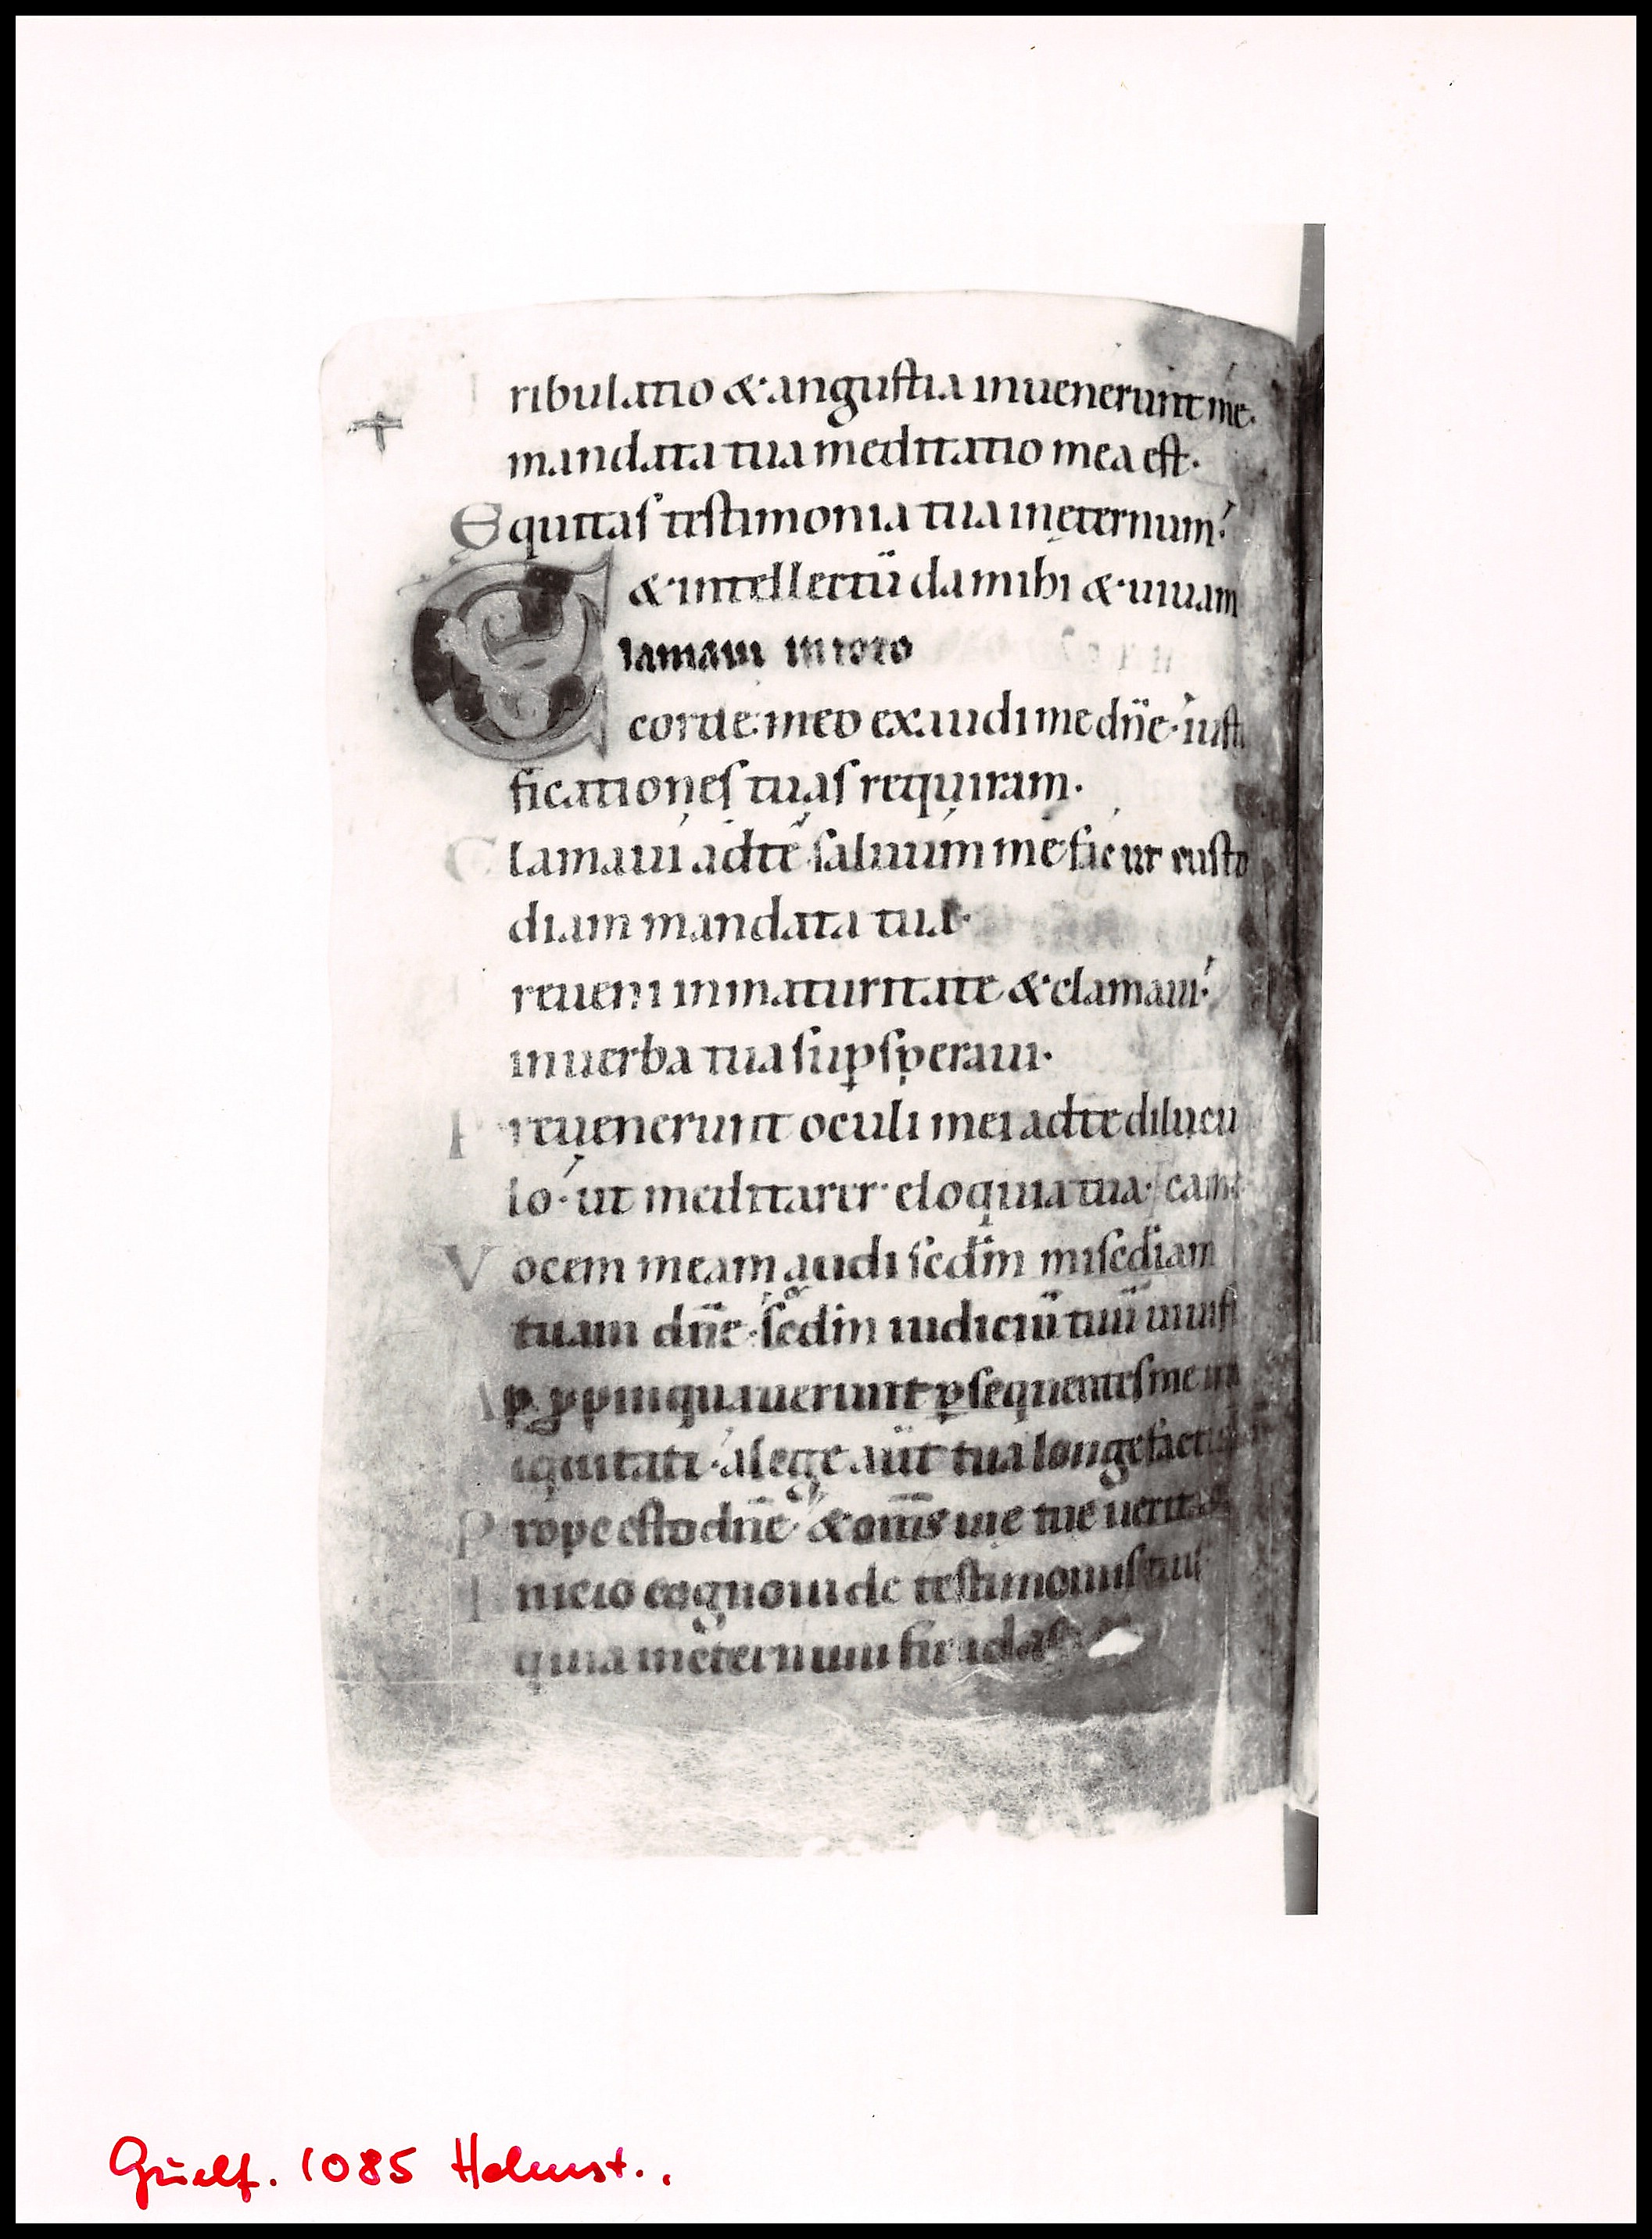 ribulatio & angustia inuenerunt me.
mandata tua meditatio mea est.
Equitas testimonia tua in ęternum.
& intellectū da mihi & uiuam
Clamaui in toto
corde meo exaudi me dn̄e. iusti
ficationes tuas requiram.
Clamaui ad te saluum me fac ut custo
diam mandata tua.
reueni in maturitate & clamaui.
in uerba tua sup̄speraui.
Preuenerunt oculi mei ad te dilucu
lo. ut meditarer eloquia tua.
Vocem meam audi scd̄m misc̄diam
tuam dn̄e. scd̄m iudiciū tuū uiuifi
App̄pinquauerunt p̄sequentes me in
iquitati. a lege aūt tua longe facti
Prope esto dn̄e & om̄s uie tue uerita
Inicio cognoui de testimoniis tuis
quia in ęternum
Guelf. 1085 Helmst.